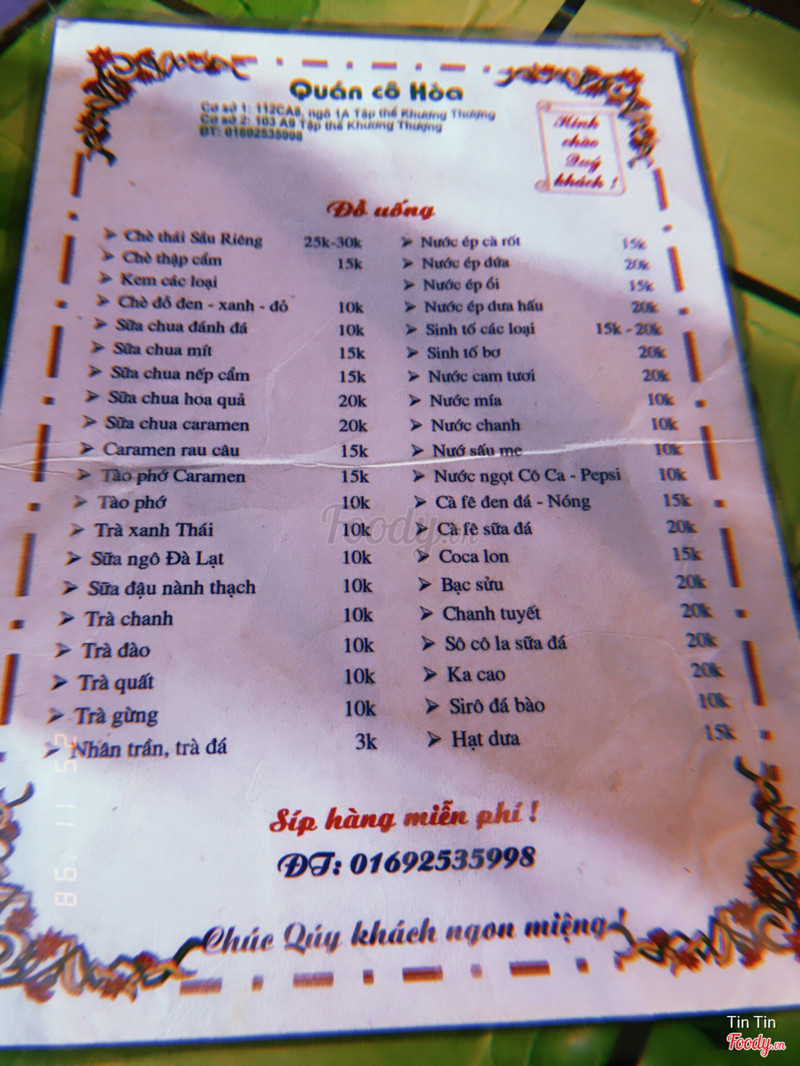 Quán cô Hòa
Cơ sở 1: 112CA8, ngõ 1A Tập thể Khương Thượng
Cơ sở 2: 103 A9 Tập thể Khương Thượng
ĐT: 01692535998
Kính
chào
Quý
khách !
Đồ uống
Chè thái Sầu Riêng 25k-30k
Chè thập cẩm 15k
Kem các loại
Chè đỗ đen - xanh - đỏ 10k
Sữa chua đánh đá 10k
Sữa chua mít 15k
Sữa chua nếp cẩm 15k
Sữa chua hoa quả 20k
Sữa chua caramen 20k
Caramen rau câu 15k
Tào phớ Caramen 15k
Tào phớ 10k
Trà xanh Thái 10k
Sữa ngô Đà Lạt 10k
Sữa đậu nành thạch 10k
Trà chanh 10k
Trà đào 10k
Trà quất 10k
Trà gừng 10k
Nhân trần, trà đá 3k
Nước ép cà rốt 15k
Nước ép dứa 20k
Nước ép ổi 15k
Nước ép dưa hấu 20k
Sinh tố các loại 15k - 20k
Sinh tố bơ 20k
Nước cam tươi 20k
Nước mía 10k
Nước chanh 10k
Nướ sấu me 10k
Nước ngọt Cô Ca - Pepsi 10k
Cà fê đen đá - Nóng 15k
Cà fê sữa đá 20k
Coca lon 15k
Bạc sửu 20k
Chanh tuyết 20k
Sô cô la sữa đá 20k
Ka cao 20k
Sirô đá bào 10k
Hạt dưa 15k
Síp hàng miễn phí !
ĐT: 01692535998
Chúc Qúy khách ngon miệng !
Foody.vn
25 11 '98
Tin Tin
Foody.vn